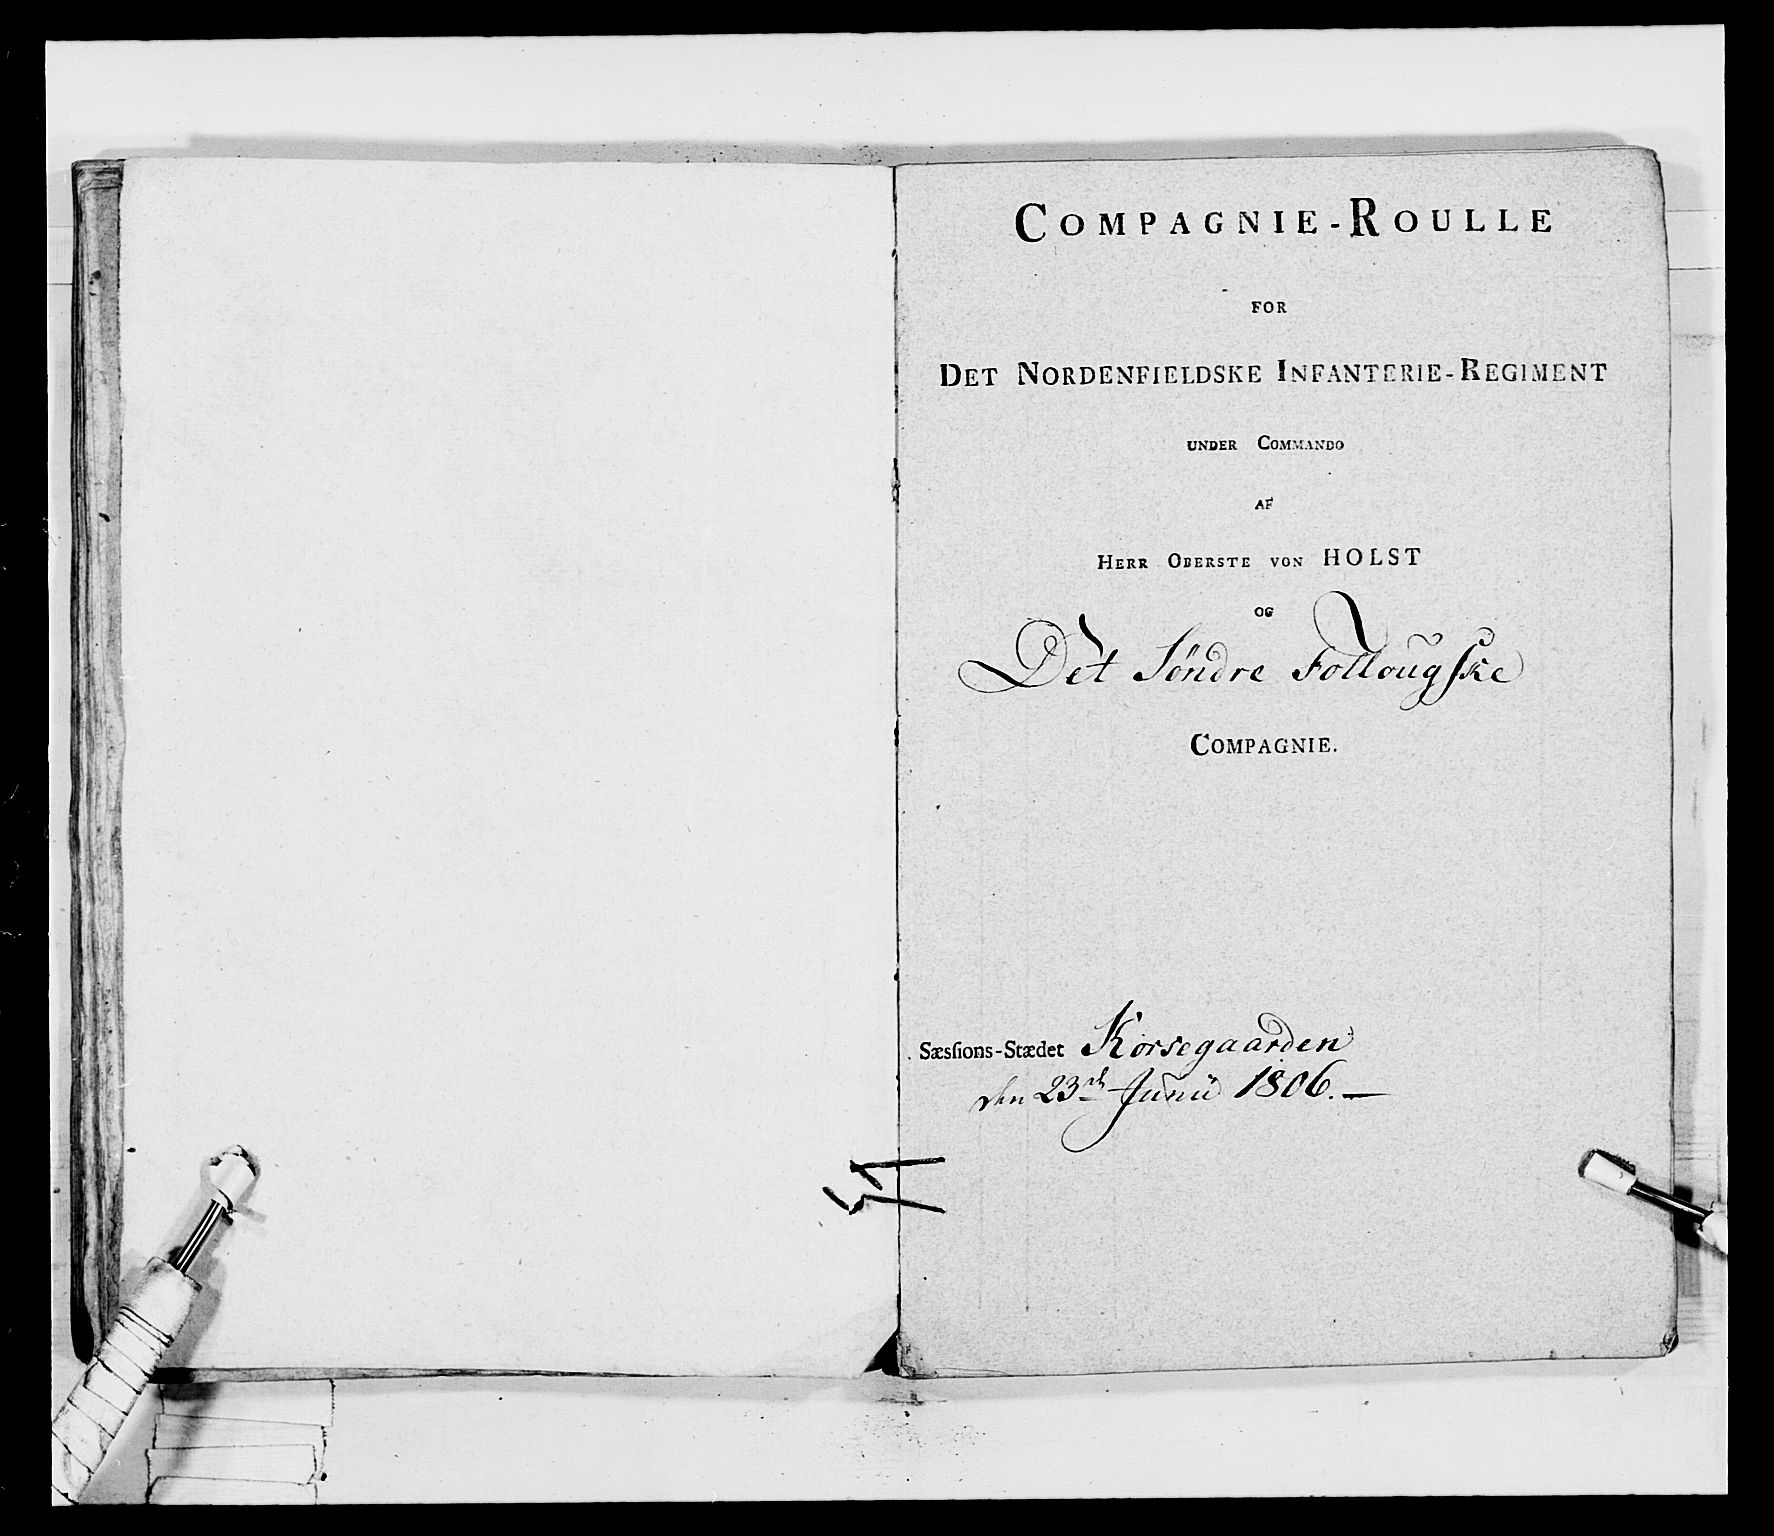 COMPAGNIE-ROULLE
FOR
DET NORDENFIELDSKE INFANTERIE-REGIMENT
UNDER COMMANDO
AF
HERR OBERSTE VON HOLST
OG
Det Söndre Follougske
COMPAGNIE.
Sæsſions-Stædet Korsegaarden
den 23de Junii 1806.—